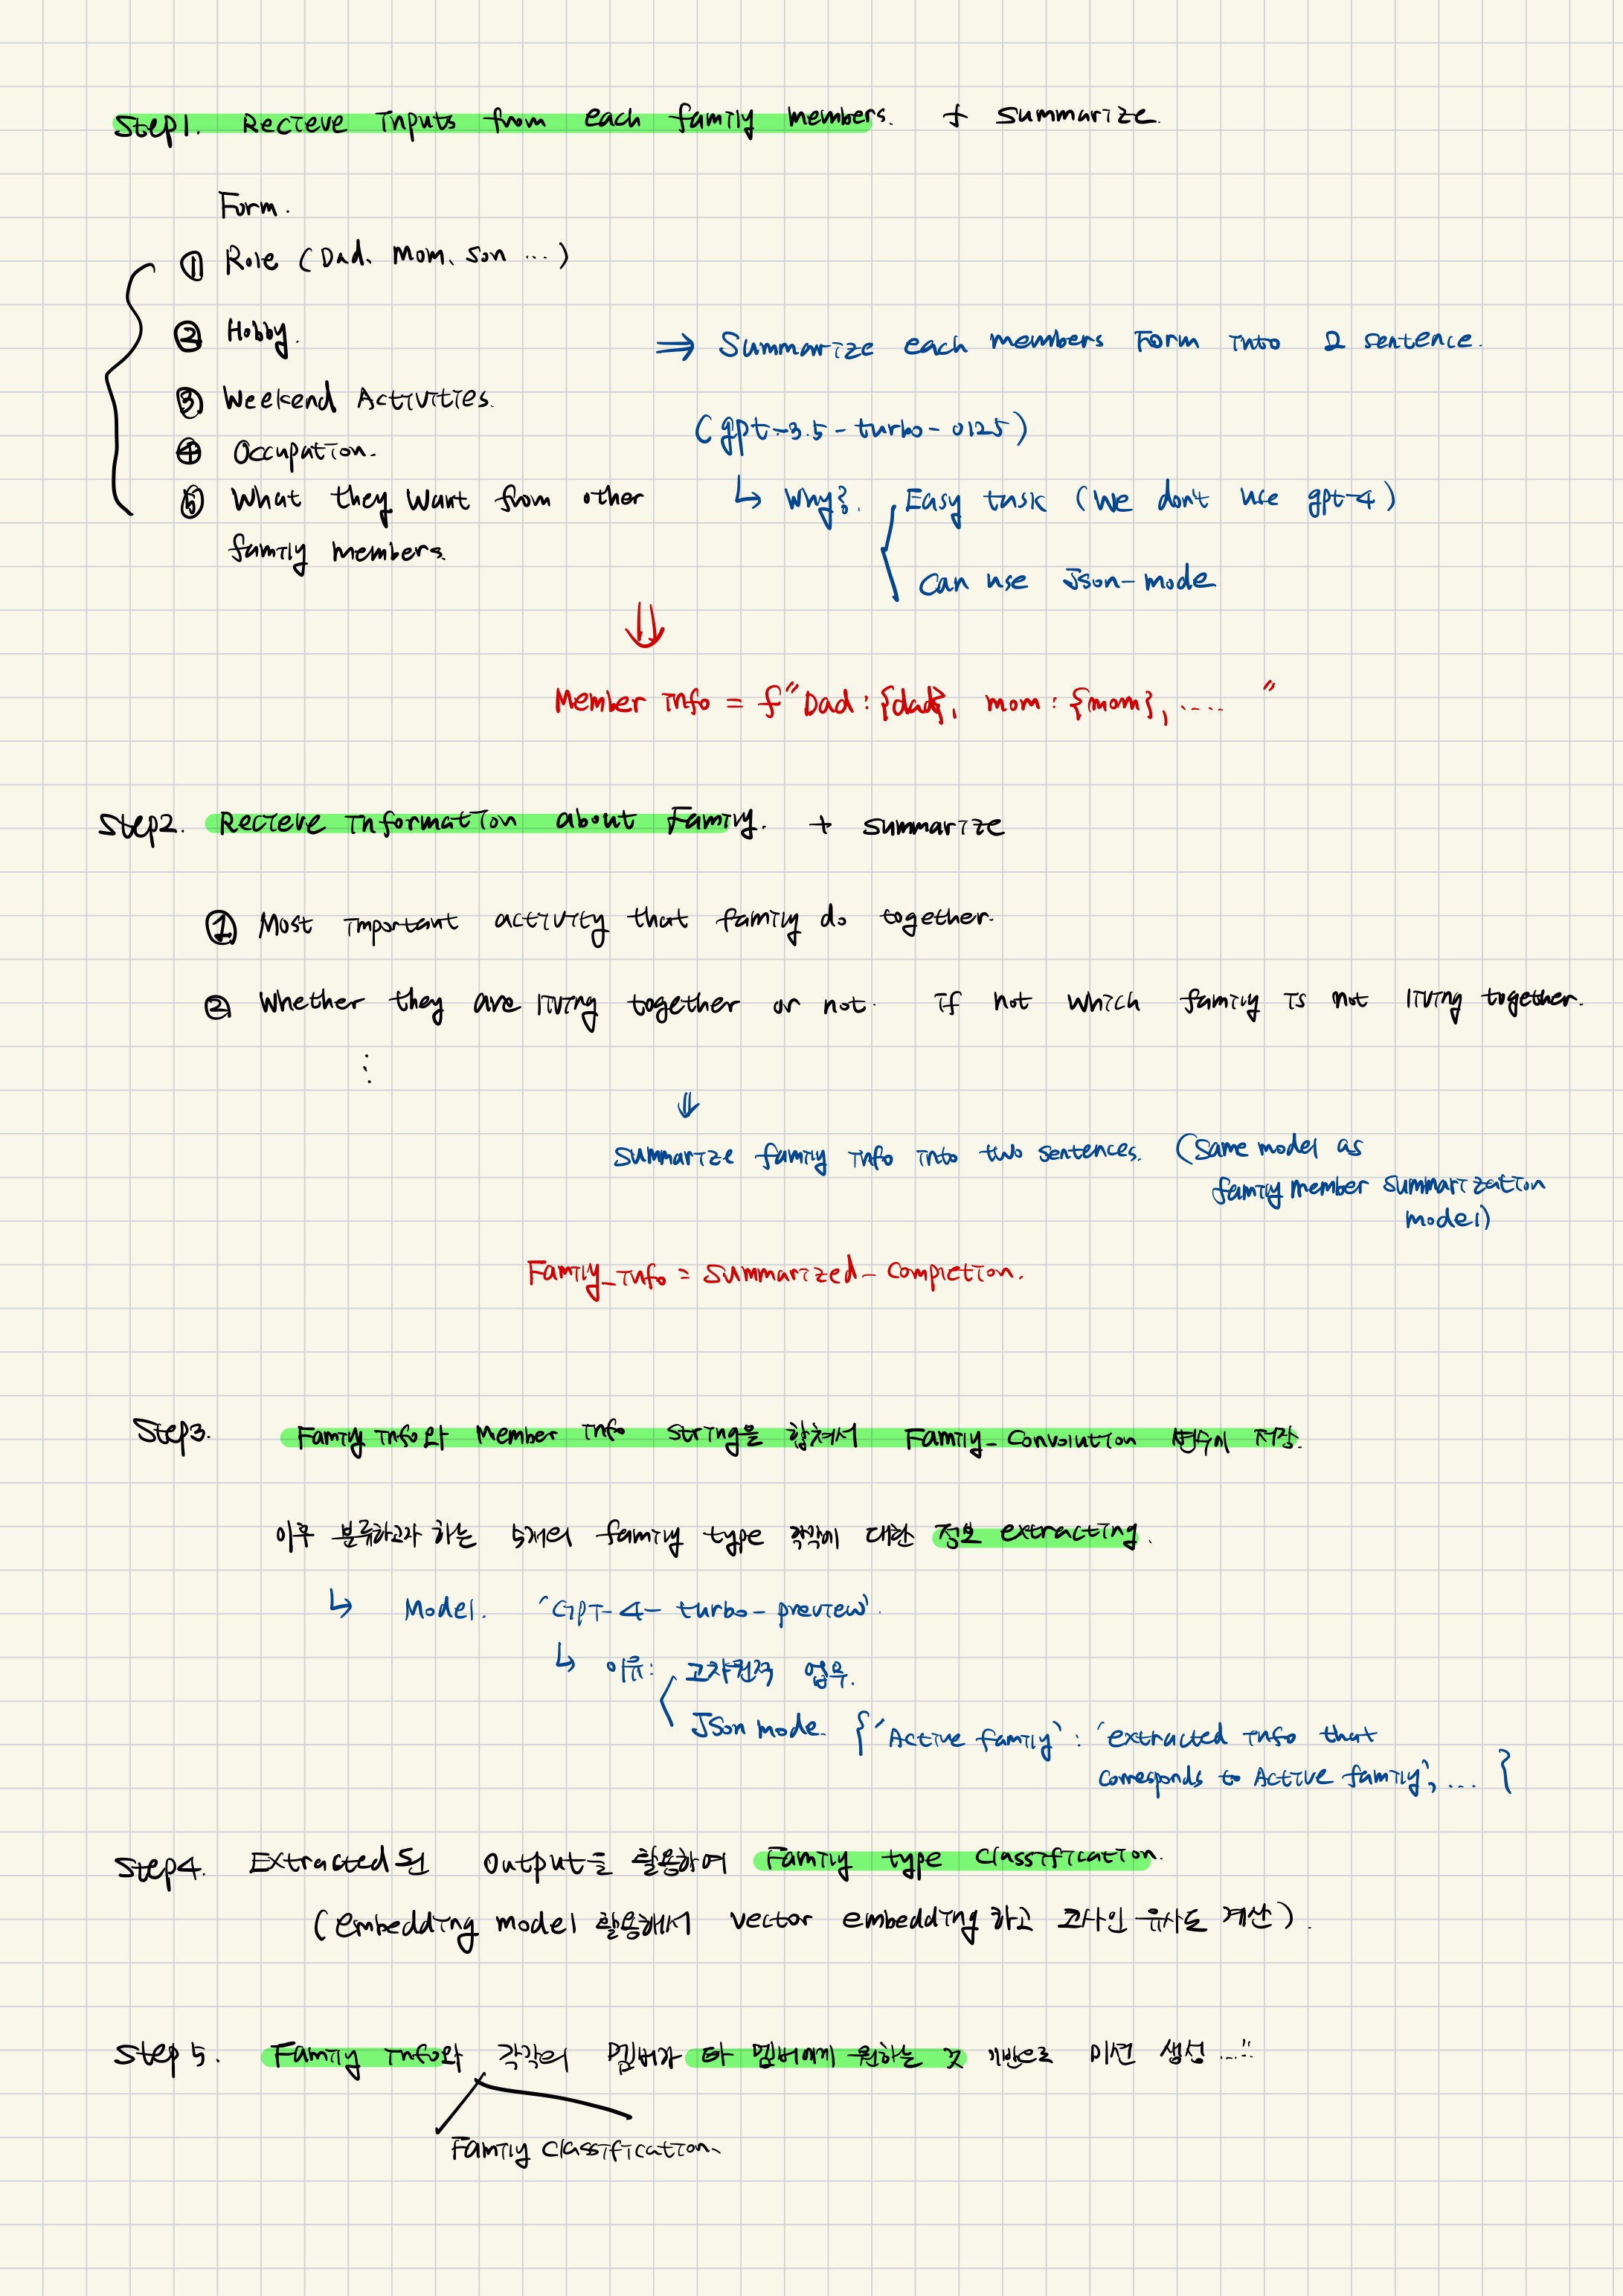 Step1. Recieve inputs from each family members. + summarize.
Form.
① Role (Dad, Mom, son ...)
② Hobby.
⇒ Summarize each members Form into 2 sentence.
③ Weekend Activities.
(gpt-3.5-turbo-0125)
④ Occupation.
⑤ What they want from other
family members.
↳ Why? Easy task (We don't use gpt-4)
Can use Json-mode
⇓
Member info = f"Dad: {dad}, mom: {mom}, ...."
Step2. Recieve information about Family. + summarize
① Most important activity that family do together.
② Whether they are living together or not. if not which family is not living together.
⋮
⇓
summarize family info into two sentences. (same model as
family member summarization
model)
Family_info = summarized_completion.
Step3. Family info와 Member info string을 합쳐서 Family_Convolution 변수에 저장.
이후 분류하고자 하는 5개의 family type 각각에 대한 정보 extracting.
↳ Model. 'GPT-4-turbo-preview'.
↳ 이유: 고차원적 업무.
JSon mode. {'Active family': 'extracted info that
corresponds to Active family', ... }
Step4. Extracted 된 Output을 활용하여 Family type Classification.
(embedding model 활용해서 vector embedding 하고 코사인 유사도 계산).
Step 5. Family info와 각각의 멤버가 타 멤버에게 원하는 것 기반으로 미션 생성 ...
Family classification.